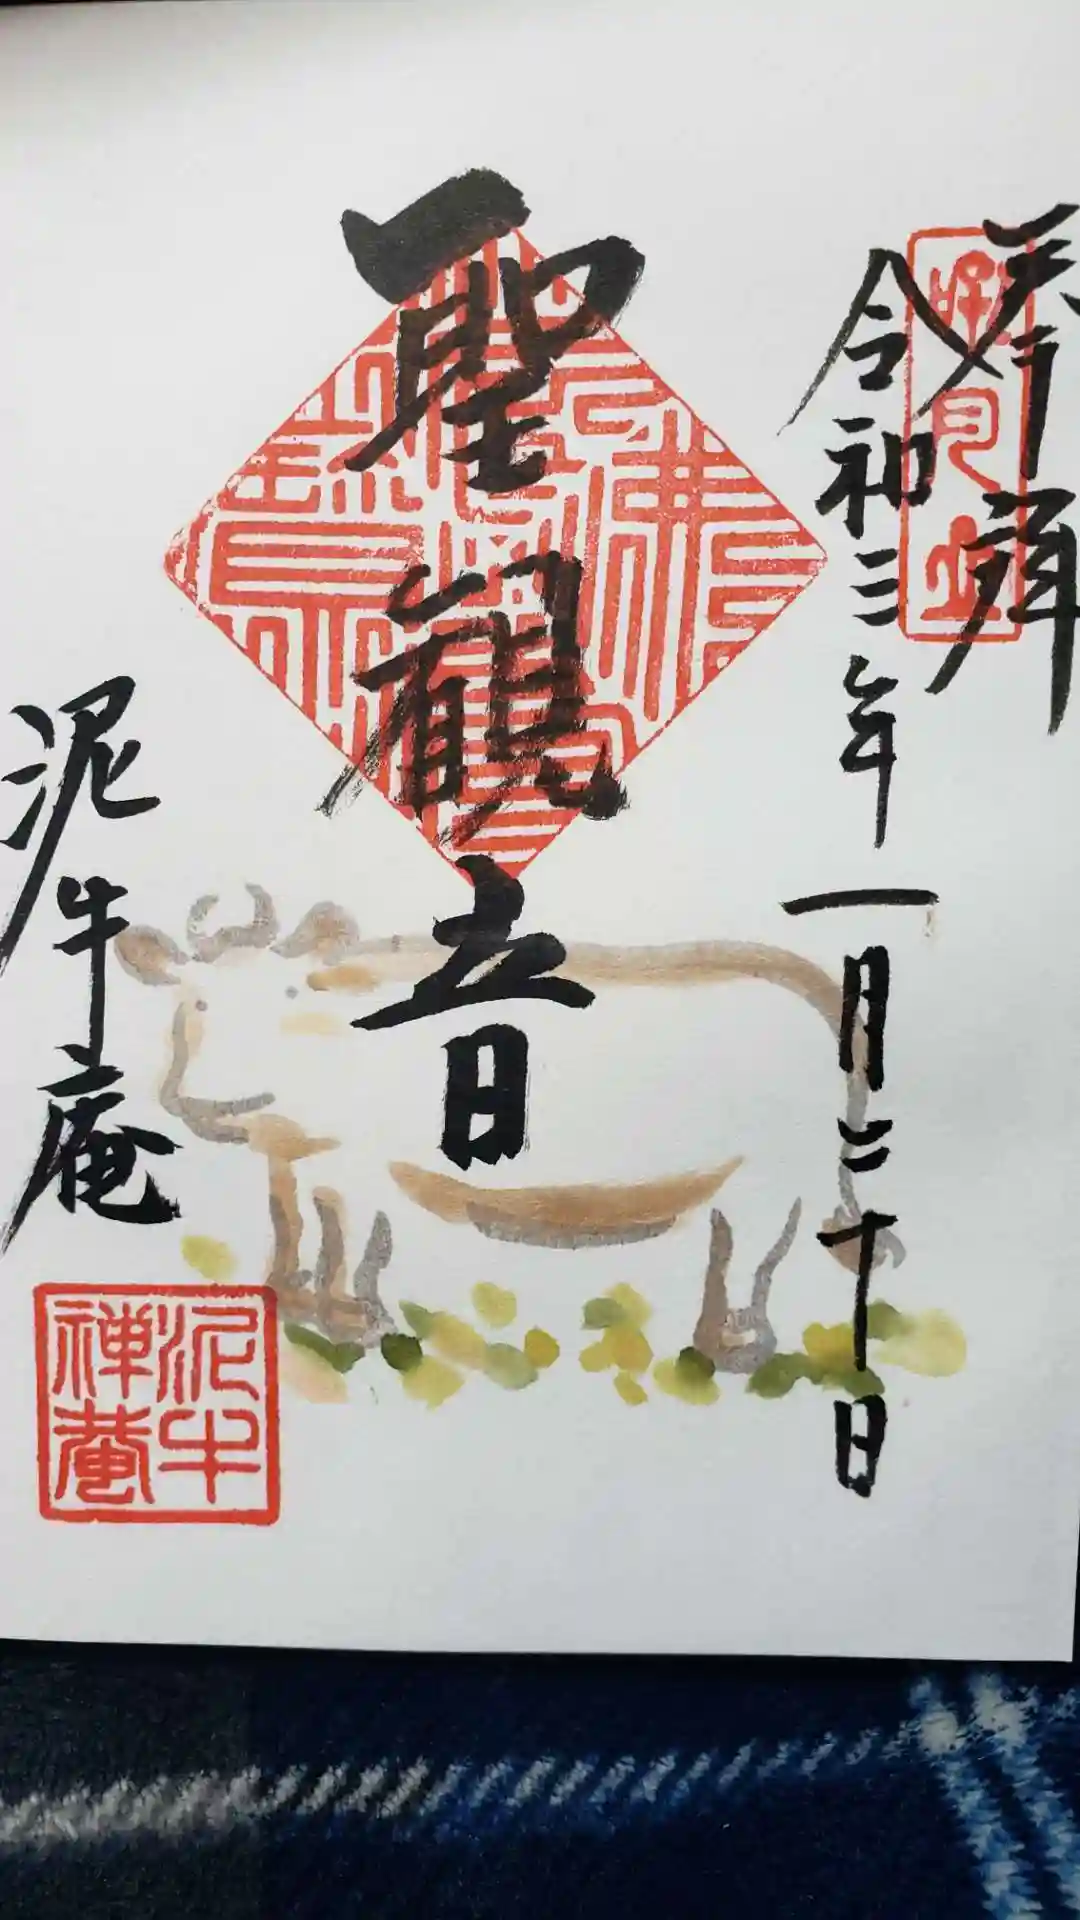 奉拝
令和三年一月二十日
聖観音
泥牛庵
泥牛
禅菴